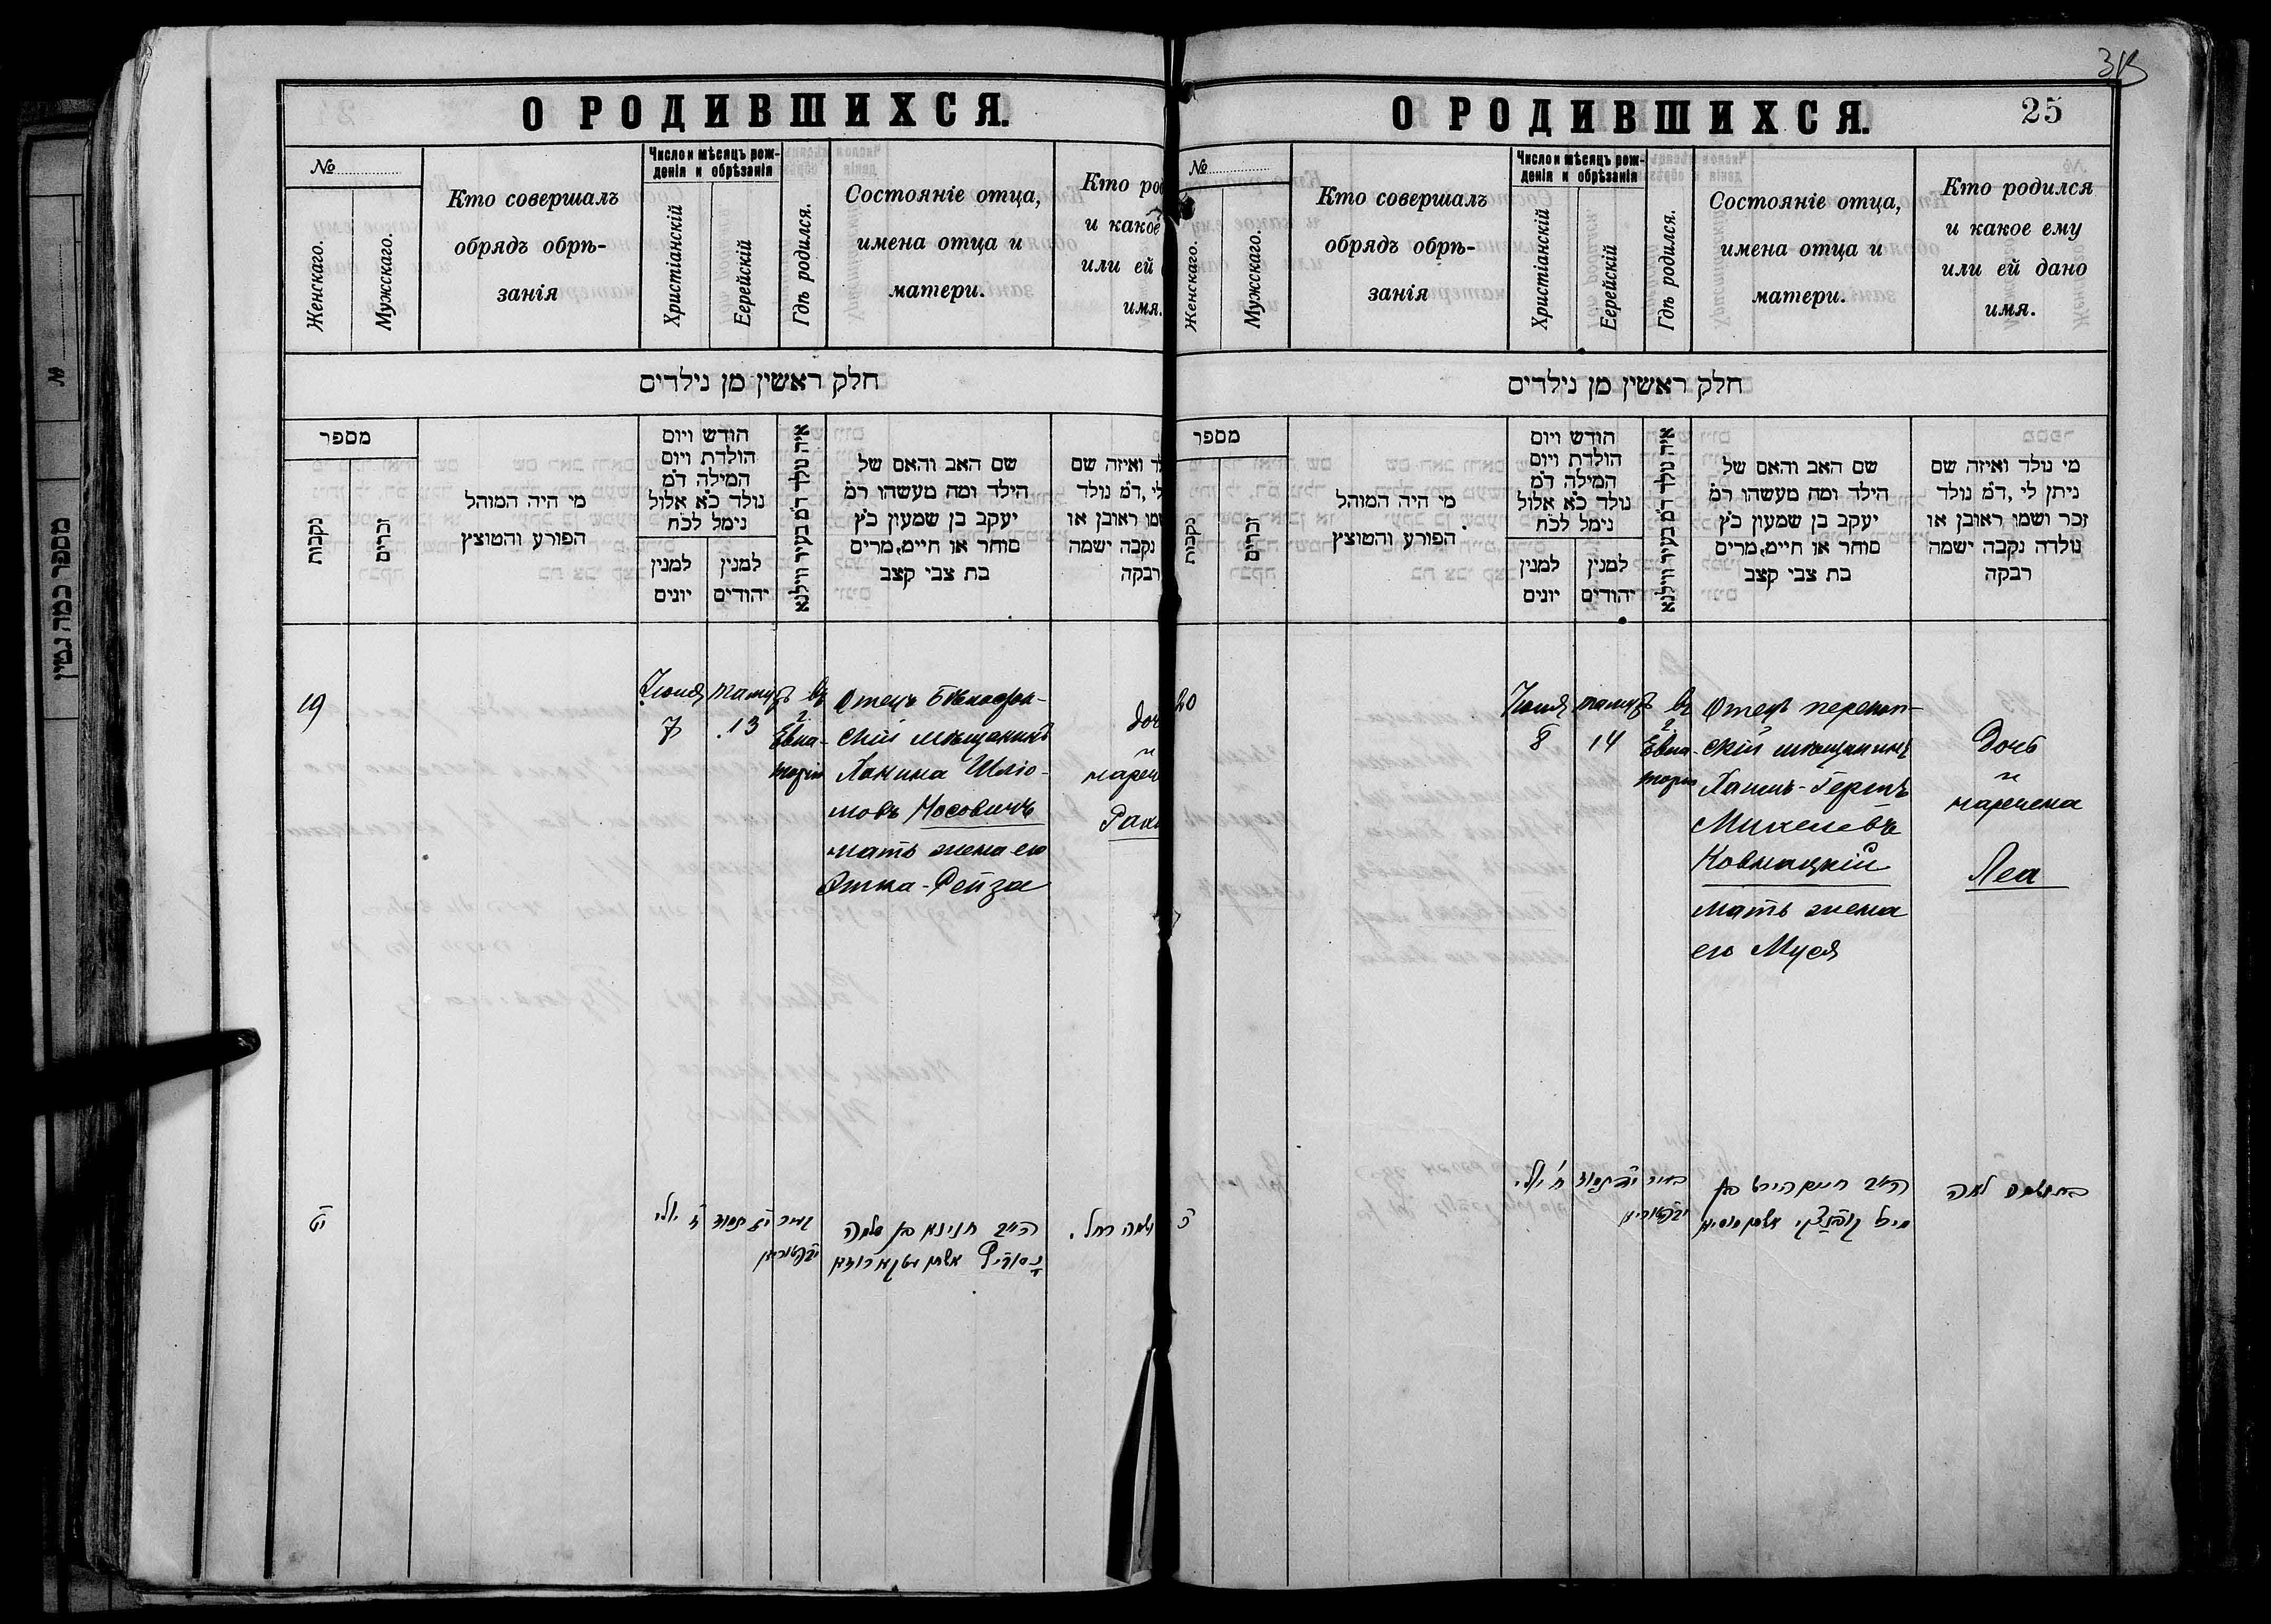 О РОДИВШИХСЯ.
№
Женскаго.
Мужскаго.
Кто совершалъ
обрядъ обрѣ-
занія
Число и мѣсяцъ рож-
денія и обрѣзанія
Христіанскій
Еерейскій
Гдѣ родился.
Состояніе отца,
имена отца и
матери.
Кто ро
и какое
или ей
имя.
חלק ראשון מן נילדים
מספר
נקבות
זכרים
מי היה המוהל
הפורע והמוצץ
חודש ויום
הולדת ויום
המילה דמ
נולד כא אלול
נימל לכח
למנין
יונים
למנין
יהודים
איה נולד דמ בעיר ווילנא
שם האב והאם של
הילד ומה מעשהו רמ
יעקב בן שמעון כץ
סוחר או חיים, מרים
בת צבי קצב
ד ואיזה שם
לי, דמ נולד
שמו ראובן או
נקבה ישמה
רבקה
19
Іюня
7
тамуз
13
въ
г.
Евпа-
торіи
Отецъ
скій мѣщанинъ
Ханина Шлio-
мовъ Носовичъ
мать жена его
Этка-Рейза
доч
и
нарече
Рахи
יט
ז יולי
יג תמוז
בעיר
חנינא בן שלמה
שמה רחל.
О РОДИВШИХСЯ.
25
№
Женскаго.
Мужскаго.
Кто совершалъ
обрядъ обрѣ-
занія
Число и мѣсяцъ рож-
денія и обрѣзанія
Христіанскій
Еерейскій
Гдѣ родился.
Состояніе отца,
имена отца и
матери.
Кто родился
и какое ему
или ей дано
имя.
חלק ראשון מן נילדים
מספר
נקבות
זכרים
מי היה המוהל
הפורע והמוצץ
חודש ויום
הולדת ויום
המילה דמ
נולד כא אלול
נימל לכח
למנין
יונים
למנין
יהודים
איה נולד דמ בעיר ווילנא
שם האב והאם של
הילד ומה מעשהו רמ
יעקב בן שמעון כץ
סוחר או חיים, מרים
בת צבי קצב
מי נולד ואיזה שם
ניתן לי, דמ נולד
זכר ושמו ראובן או
נולדה נקבה ישמה
רבקה
20
Іюня
8
тамуз
14
въ
г.
Евпа-
торіи
Отецъ перекоп-
скій мѣщанинъ
Хаимъ-Гершъ
Михелевъ
Ковнацкій
мать жена
его Муся
Дочь
и
наречена
Леа
כ
ח' יולי
יד תמוז
בעיר
חיים הירש בן
מיכל קובנצקי אשתו מוסיא
בת ושמה לאה